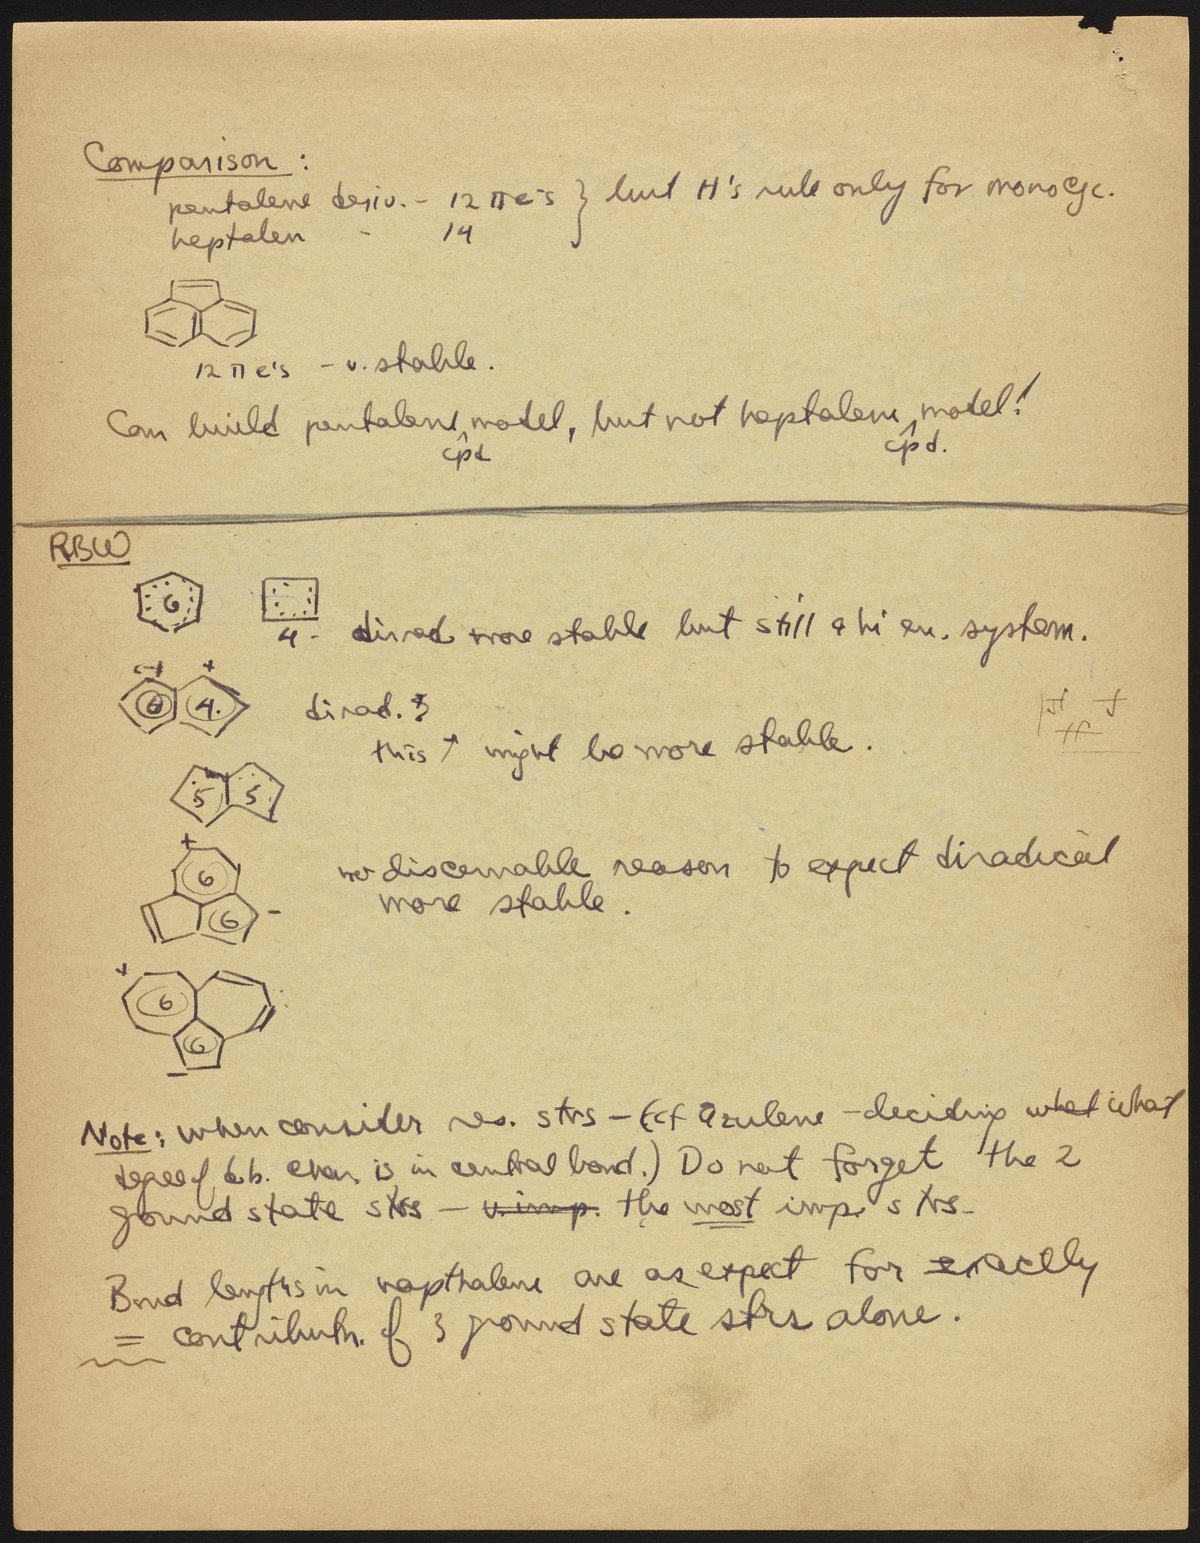 Comparison :
pentalene deriv. - 12 π e's } but H's rule only for monocyc.
heptalen - 14
12 π e's - v. stable.
Can build pentalene model, but not heptalene model!
cpd cpd.
RBW
6
4 - dirad more stable but still a hi en. system.
(-) +
6 4. dirad. ?
this ↑ might be more stable.
5 5
+
6 no discernable reason to expect diradical
6 -
more stable.
+
6
6
-
Note: when consider res. strs - (cf azulene - deciding what what
degree of d.b. char. is in central bond.) Do not forget the 2
ground state strs - v. imp. the most imp. strs -
Bond lengths in napthalene are as expect for exactly
= contributn. of 3 ground state strs alone.